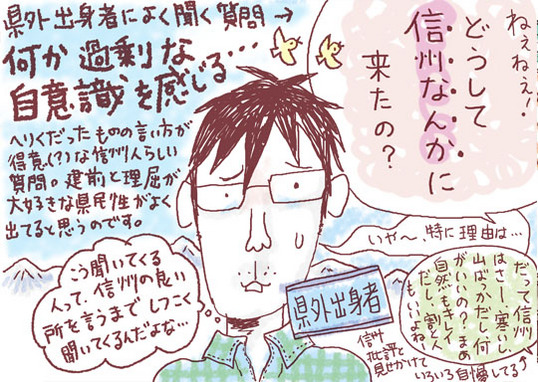 県外出身者によく聞く質問→
何か過剰な
自意識を感じる…
へりくだったものの言い方が
得意(?)な信州人らしい
質問。建前と理屈が
大好きな県民性がよく
出てると思うのです。
ねぇねぇ!
どうして
信州なんかに
来たの?
いや〜、特に理由は…
だって信州
はさー、寒いし
山ばっかだし何
がいいの?まぁ
自然もキレイ
だし、割と人
もいいよね
信州
批評と
見せかけて
いろいろ自慢してる
県外出身者
こう聞いてくる
人って、信州の良い
所を言うまでしつこく
聞いてくるんだよな…